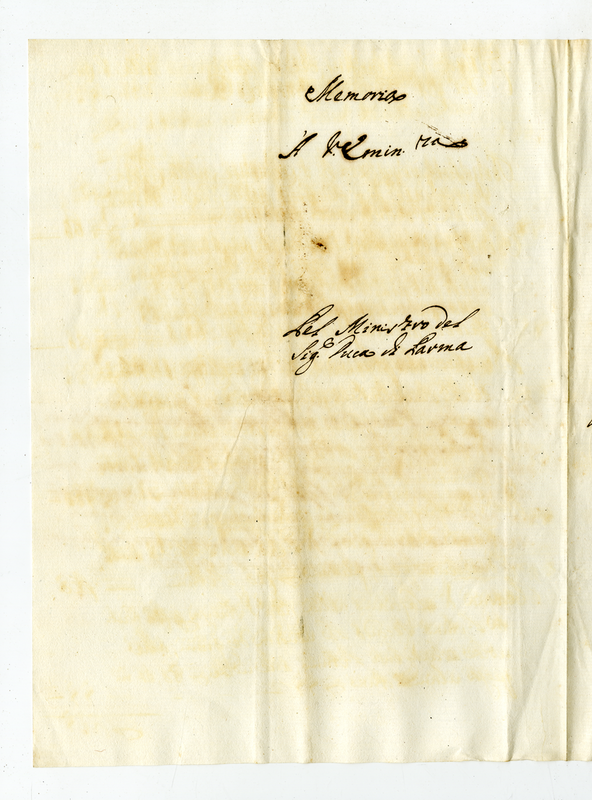 Memoria
A V. Emin.za
Del Ministro del
Sig.r Duca di Parma